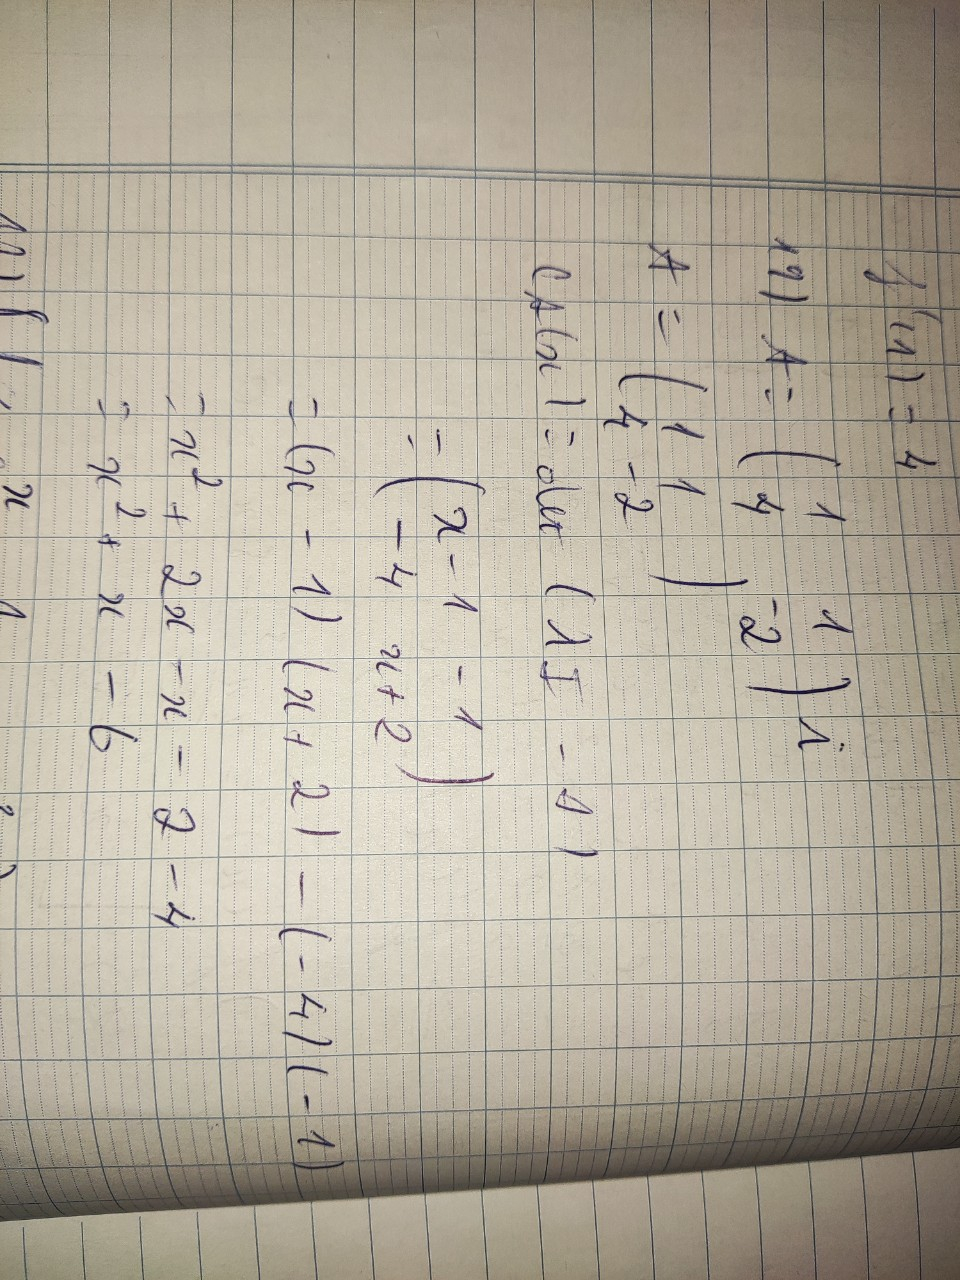 f(n) = 4
19) A = ( 1 1
4 -2 ) i
A = ( 1 1
4 -2 )
CA(x) = det (λI - A)
= ( x - 1 -1
-4 x+2 )
= (x - 1) (x + 2) - (-4)(-1)
= x² + 2x - x - 2 - 4
= x² + x - 6